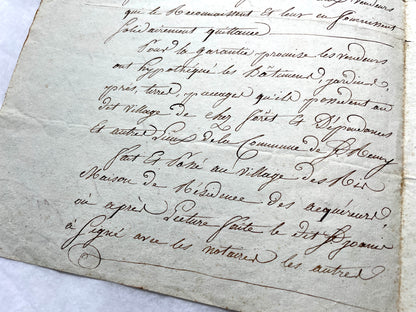 vendeurs
que le Reconnaissent et leur en fournissent
solidairement quittance
Pour la garantie promise les vendeurs
ont hypothéqué les Bâtiments, jardins,
prés, terres, pacages qu'ils possèdent au
dit village de chez foret et Dépendances
et autres Lieux de la Commune de St
fait et Passé au village des
Maison de Résidence des acquéreurs,
où après Lecture faite le dit
à signé avec les notaires les autres